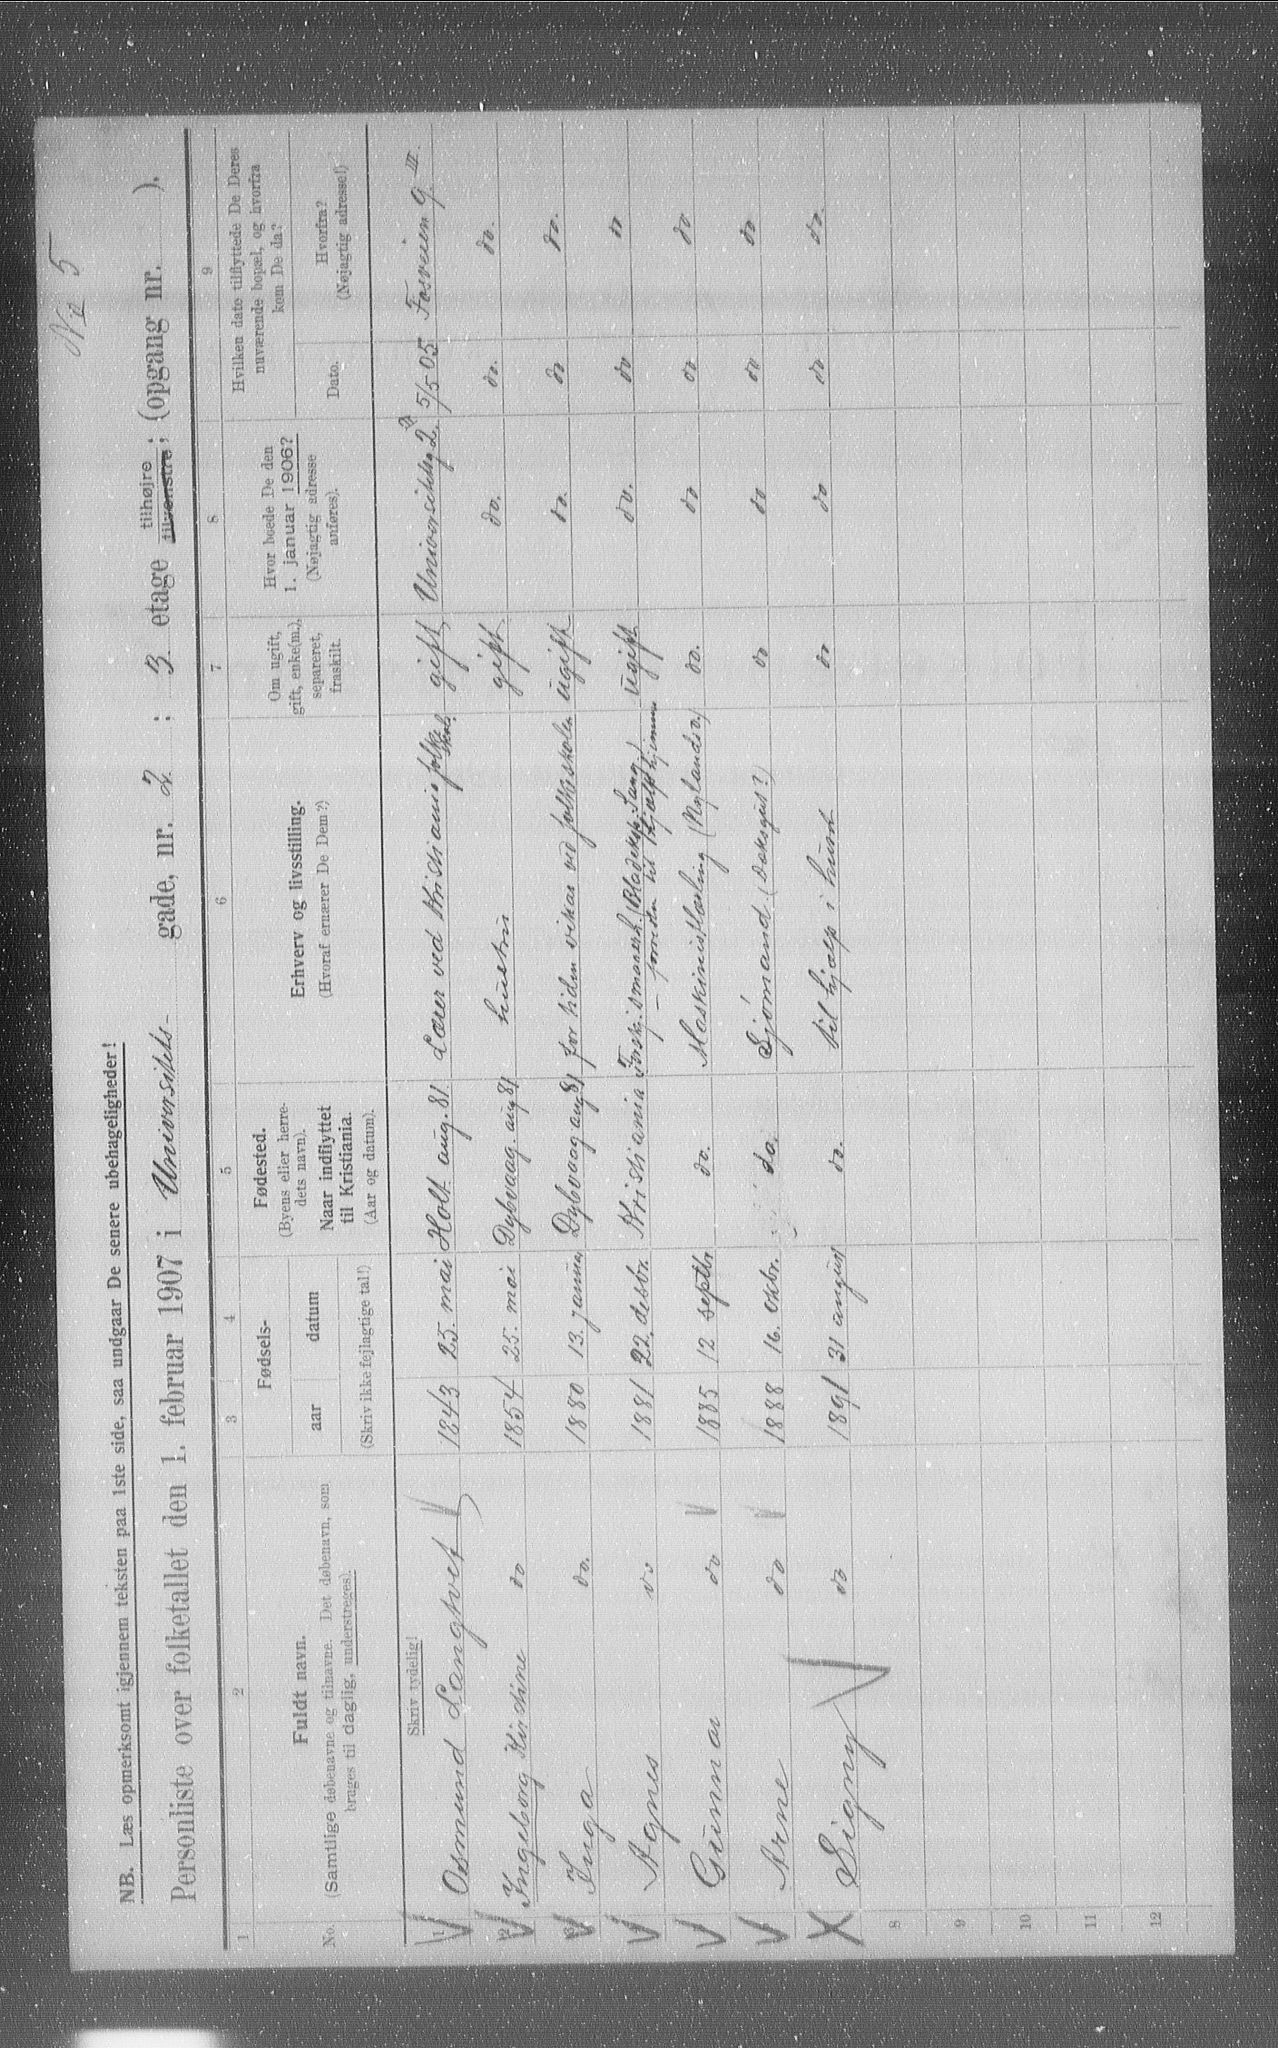 No 5
NB. Læs opmerksomt igjennem teksten paa 1ste side, saa undgaar De senere ubehageligheder!
Personliste over folketallet den 1. februar 1907 i Universitets- gade, nr. 2 ; 3 etage tilhøjre tilvenstre; (opgang nr. ).
1 2 3 4 5 6 7 8 9
No.
Fuldt navn.
(Samtlige døbenavne og tilnavne. Det døbenavn, som bruges til daglig, understreges).
Fødsels-
aar datum
(Skriv ikke fejlagtige tal!)
Fødested.
(Byens eller herredets navn).
Naar indflyttet til Kristiania.
(Aar og datum).
Erhverv og livsstilling.
(Hvoraf ernærer De Dem?)
Om ugift, gift, enke(m.), separeret, fraskilt.
Hvor boede De den 1. januar 1906?
(Nøjagtig adresse anføres).
Hvilken dato tilflyttede De Deres nuværende bopæl, og hvorfra kom De da?
Dato.
Hvorfra?
(Nøjagtig adresse!)
Skriv tydelig!
1 Osmund Langtvet 1843 25. mai Holt aug. 81. Lærer ved Kristiania folkeskole. gift, Universitetsg. 2 5/5 05 Fosveien 9 III.
2 Ingeborg Kirstine do 1854 25. mai Dybvaag. aug 81 hustru gift do. do. do.
3 Inga do. 1880 13. januar Dybvaag aug 81 for tiden vikar ved folkeskolen ugift do. do do.
4 Agnes do 1881 22. desbr. Kristiania - forresten til hjælp i hjemmet ugift do. do do
5 Gunnar do 1885 12 septbr do. Maskinistlærling (Nylands v.) do. do do do
6 Arne do 1888 16. oktbr. do. Sjömand do do do do
Signy do 1891 31 august do. til hjælp i huset do do do do.
8
9
10
11
12